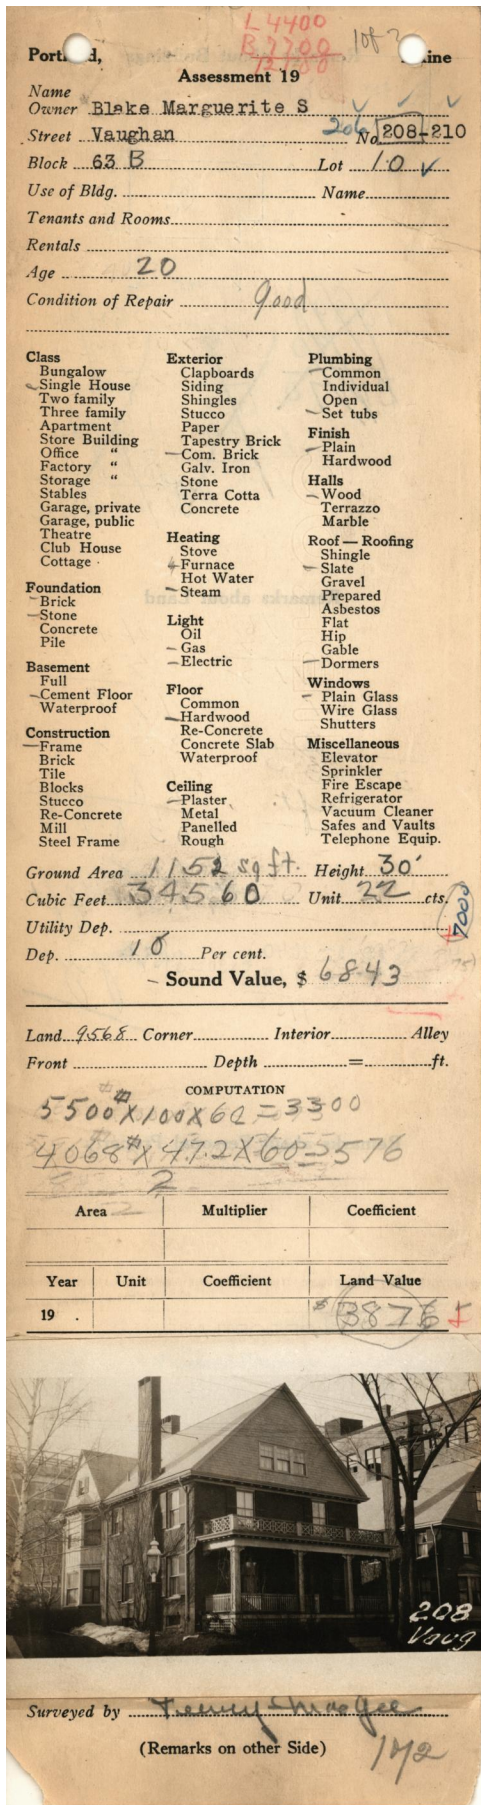 L 4400
B 7700
12100
Portland, Maine
Assessment 19
Name
Owner Blake Marguerite S
Street Vaughan 206 No. 208-210
Block 63 B Lot 10
Use of Bldg. Name
Tenants and Rooms
Rentals
Age 20
Condition of Repair good
Class
Bungalow
Single House
Two family
Three family
Apartment
Store Building
Office "
Factory "
Storage "
Stables
Garage, private
Garage, public
Theatre
Club House
Cottage
Foundation
Brick
Stone
Concrete
Pile
Basement
Full
Cement Floor
Waterproof
Construction
Frame
Brick
Tile
Blocks
Stucco
Re-Concrete
Mill
Steel Frame
Exterior
Clapboards
Siding
Shingles
Stucco
Paper
Tapestry Brick
Com. Brick
Galv. Iron
Stone
Terra Cotta
Concrete
Heating
Stove
Furnace
Hot Water
Steam
Light
Oil
Gas
Electric
Floor
Common
Hardwood
Re-Concrete
Concrete Slab
Waterproof
Ceiling
Plaster
Metal
Panelled
Rough
Plumbing
Common
Individual
Open
Set tubs
Finish
Plain
Hardwood
Halls
Wood
Terrazzo
Marble
Roof — Roofing
Shingle
Slate
Gravel
Prepared
Asbestos
Flat
Hip
Gable
Dormers
Windows
Plain Glass
Wire Glass
Shutters
Miscellaneous
Elevator
Sprinkler
Fire Escape
Refrigerator
Vacuum Cleaner
Safes and Vaults
Telephone Equip.
Ground Area 1152 sq ft. Height 30'
Cubic Feet 34560 Unit 22 cts.
7000
Utility Dep.
Dep. 10 Per cent.
Sound Value, $ 6843
Land 9568 Corner Interior Alley
Front Depth = ft.
COMPUTATION
5500# X 100 X 60 = 3300
4068# X 47.2 X 60 = 576
2
Area Multiplier Coefficient
Year Unit Coefficient Land Value
19 . $3876
208
Vaug
Surveyed by
(Remarks on other Side)
172